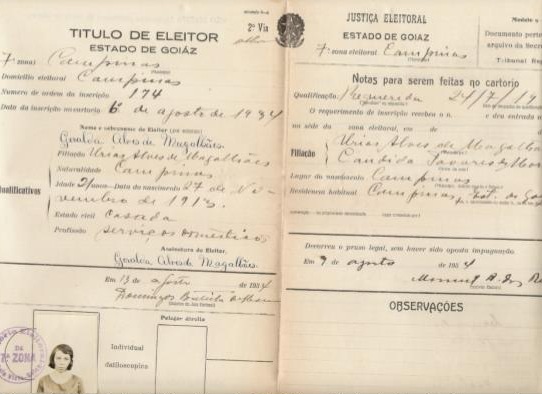 TITULO DE ELEITOR
2ª Via
ESTADO DE GOIÁZ
7ª zona Campinas
Domicilio eleitoral Campinas
Numero de ordem da inscripção 174
Data da inscripção no cartorio 6 de agosto de 1934
Nome e sobrenome do Eleitor
Geralda Alves de Magalhães
Filiação Urias Alves de Magalhães
Naturalidade Campinas
Qualificativos
Idade 21 annos Data do nascimento 27 de No-
vembro de 1913.
Estado civil Casada
Profissão serviços domesticos
Assinatura do Eleitor,
Geralda Alves de Magalhães.
Em 13 de agosto de 1934
Domingos
Polegar direito
Individual
datiloscopica
7ª ZONA
JUSTIÇA ELEITORAL
Modelo
ESTADO DE GOIAZ
7ª zona eleitoral Campinas
Documento
arquivo da
Tribunal
Notas para serem feitas no cartorio
Qualificação: Requerida 24/7/19
O requerimento de inscripção recebeu o n. e deu entrada
na séde da zona eleitoral, em de
Filiação
Urias Alves de Magalh
Candida Tavares de Mor
Lugar do nascimento Campinas
Residencia habitual Campinas Est. de Go
Decorreu o prazo legal, sem haver sido oposta impugnação.
Em 9 de agosto de 1934
OBSERVAÇÕES